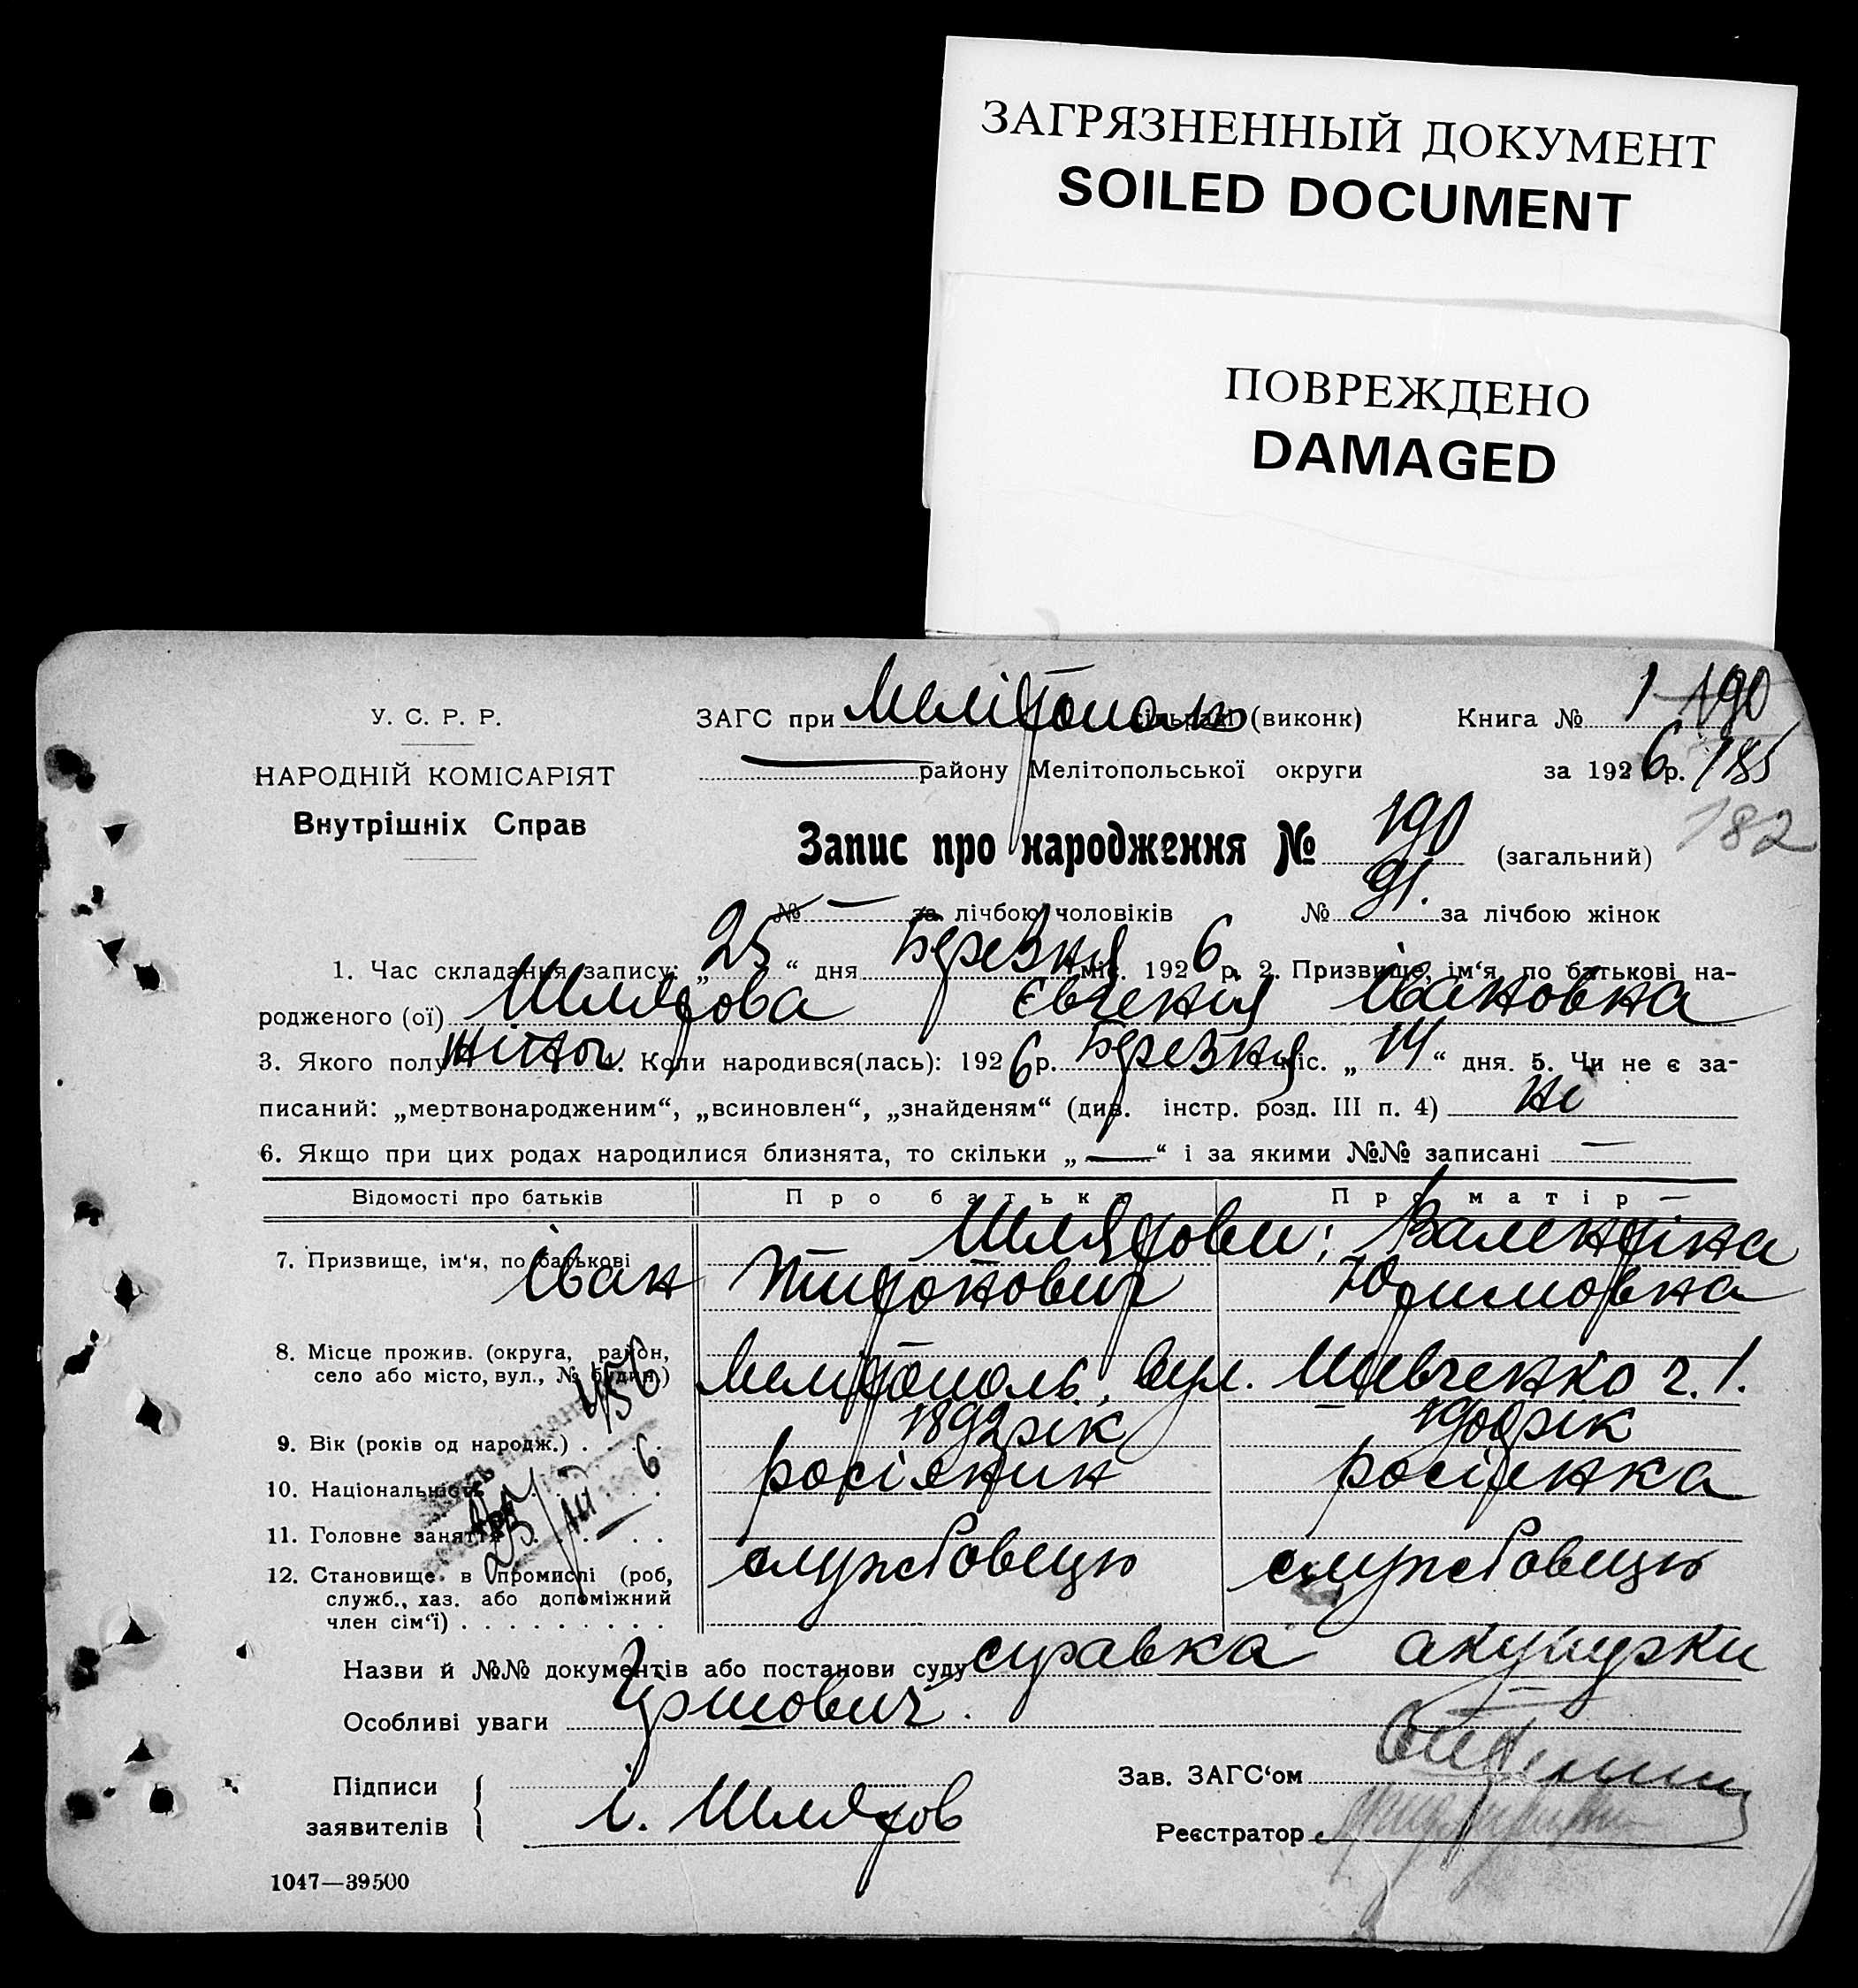 ЗАГРЯЗНЕННЫЙ ДОКУМЕНТ
SOILED DOCUMENT
ПОВРЕЖДЕНО
DAMAGED
У. С. Р. Р.
НАРОДНІЙ КОМІСАРІЯТ
Внутрішніх Справ
ЗАГС при Мелітополь (виконк) Книга № 1 190
району Мелітопольської округи за 1926 р. 185
182
Запис про народження № 190 (загальний)
№ — за лічбою чоловіків № 91. за лічбою жінок
1. Час складання запису: „25“ дня Березня міс. 1926 р. 2. Призвище, ім‘я, по батькові на-
родженого (ої) Шлярова Євгенія Івановна
3. Якого полу жіноч. Коли народився(лась): 1926 р. Березня міс. „14“ дня. 5. Чи не є за-
писаний: „мертвонародженим“, „всиновлен“, „знайденям“ (див. інстр. розд. III п. 4) ні
6. Якщо при цих родах народилися близнята, то скільки „—“ і за якими №№ записані —
Відомості про батьків Про батька Про матір —
7. Призвище, ім‘я, по батькові Шлярови; Валентіна
Іван Тихонович
8. Місце прожив. (округа, район,
село або місто, вул., № будин.) Мелітополь, вул. Шевченко ч. 1.
456
9. Вік (років од народж.) 1892 рік 1900 рік
10. Національність росіянин росіянка
25/III 6
11. Головне заняття
12. Становище в промислі (роб, службовець службовець
служб., хаз. або допоміжний
член сім‘ї)
Назви й №№ документів або постанови суду справка акушерки
Особливі уваги
Підписи
заявителів і. Шляров
Зав. ЗАГС‘ом
Реєстратор
1047—39500